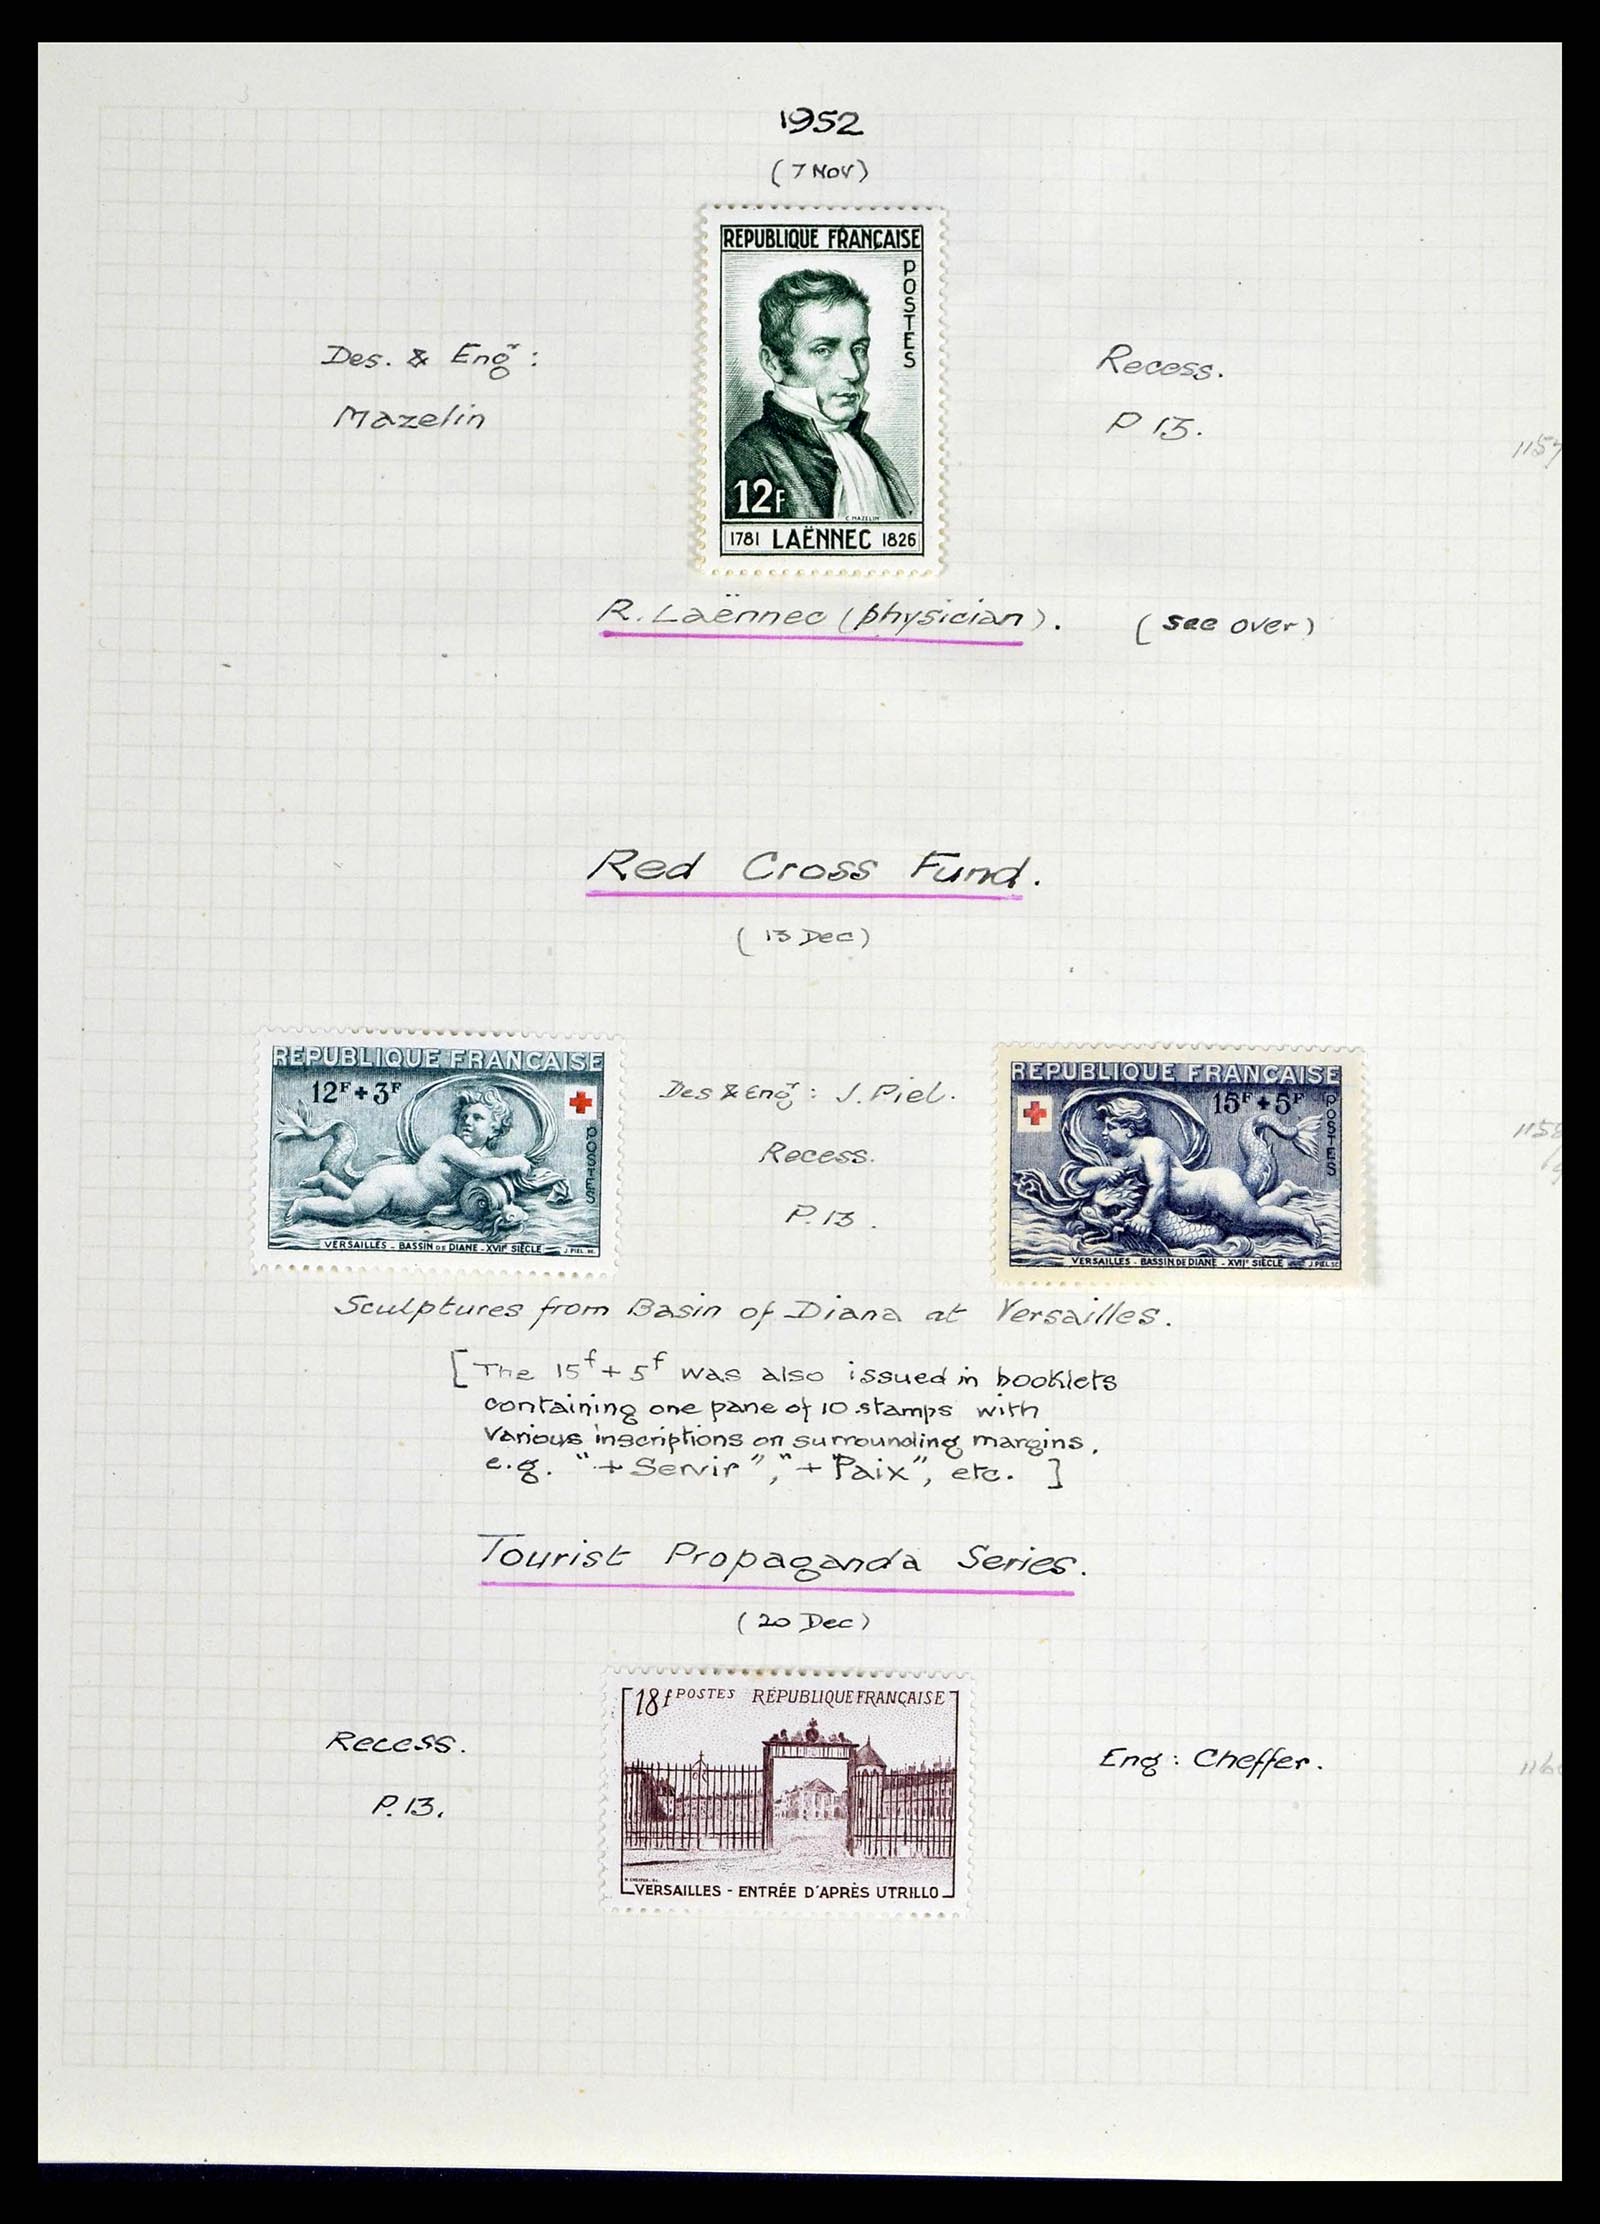 1952
(7 Nov)
REPUBLIQUE FRANÇAISE
POSTES
Des. & Engr:
Mazelin
Recess.
P 13.
12F
C. MAZELIN
1781 LAËNNEC 1826
R. Laënnec (physician). (see over)
Red Cross Fund.
(13 Dec)
REPUBLIQUE FRANÇAISE
12F + 3F
POSTES
VERSAILLES - BASSIN DE DIANE - XVIIE SIÈCLE J. PIEL. SC.
Des & Engr: J. Piel.
Recess.
P. 13.
REPUBLIQUE FRANÇAISE
15F + 5F
POSTES
VERSAILLES - BASSIN DE DIANE - XVIIE SIÈCLE J. PIEL SC
Sculptures from Basin of Diana at Versailles.
[The 15f + 5f was also issued in booklets
containing one pane of 10 stamps with
various inscriptions on surrounding margins.
e.g. "+ Servir", "+ Paix", etc. ]
Tourist Propaganda Series.
(20 Dec)
18f POSTES RÉPUBLIQUE FRANÇAISE
Recess.
P. 13.
Eng: Cheffer.
VERSAILLES - ENTRÉE D'APRÈS UTRILLO